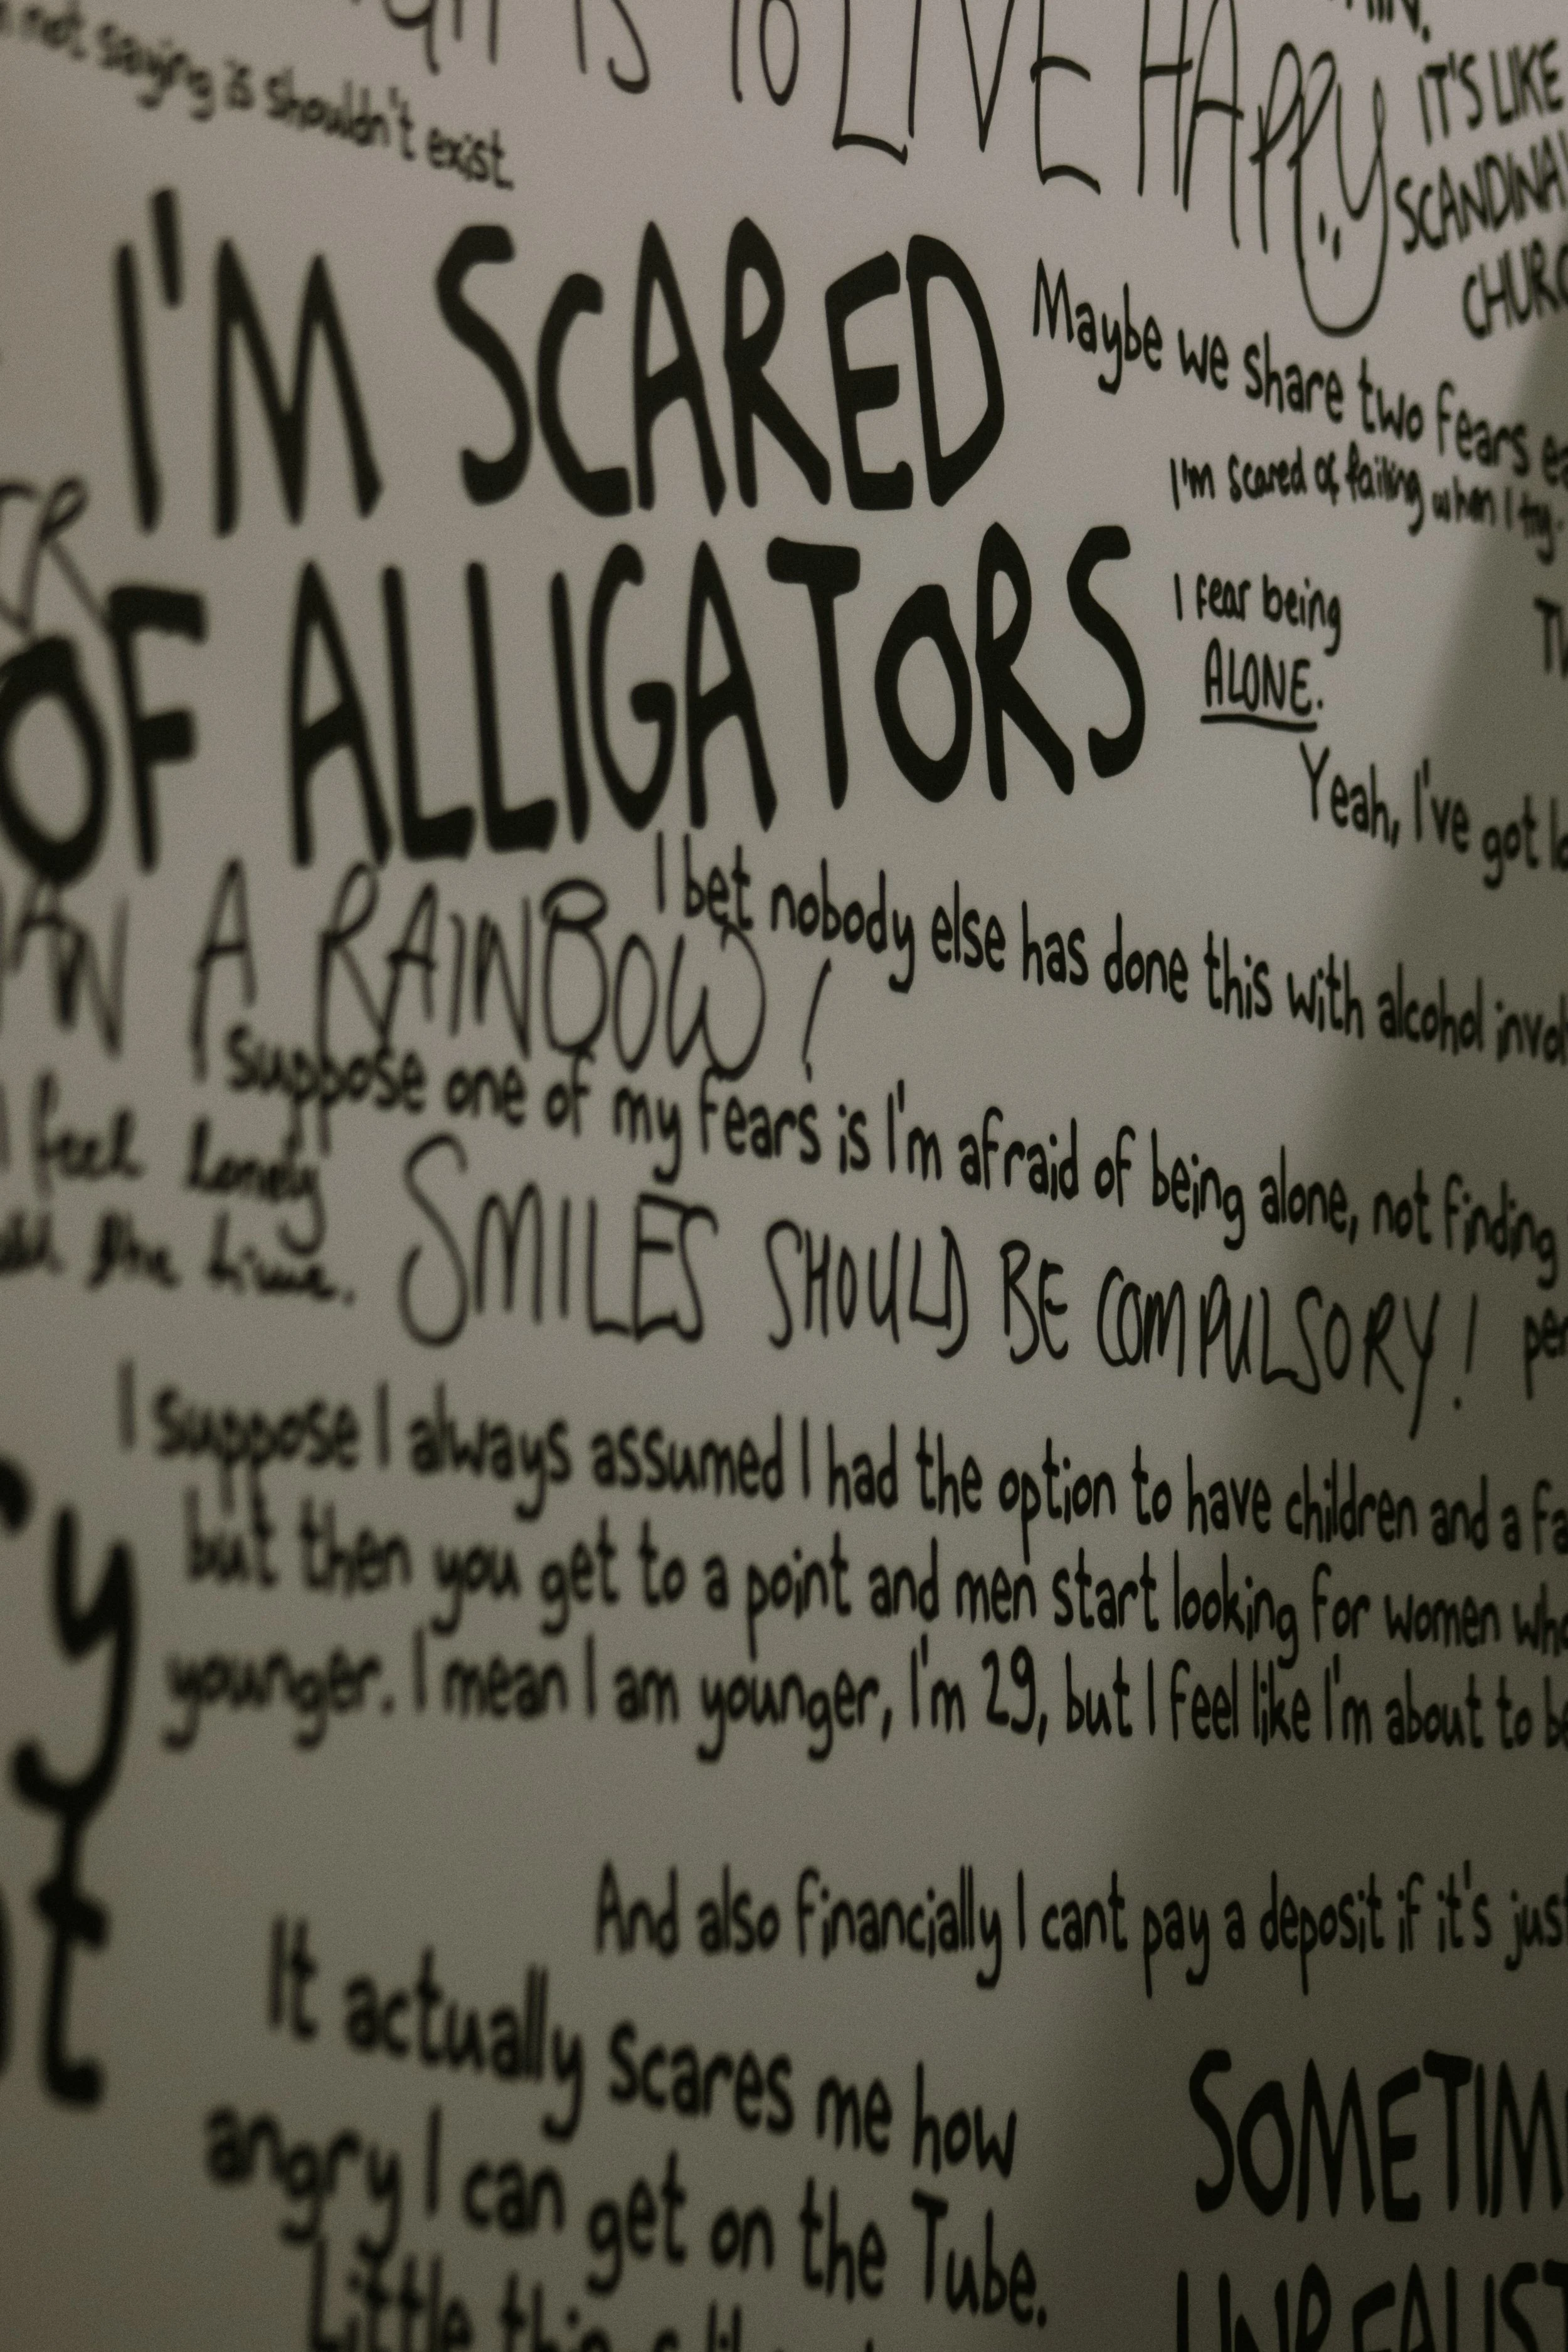 not saying is shouldn't exist
IS TO LIVE HAPPY
IT'S LIKE
I'M SCARED
OF ALLIGATORS
Maybe we share two fears
I'm scared of failing when I try.
I fear being
ALONE.
Yeah, I've got
A RAINBOW!
I bet nobody else has done this with alcohol
I suppose one of my fears is I'm afraid of being alone, not finding
I feel lonely
all the time.
SMILES SHOULD BE COMPULSORY!
I suppose I always assumed I had the option to have children and a
but then you get to a point and men start looking for women
younger. I mean I am younger, I'm 29, but I feel like I'm about to
And also financially I cant pay a deposit if it's
It actually scares me how
angry I can get on the Tube.
Little